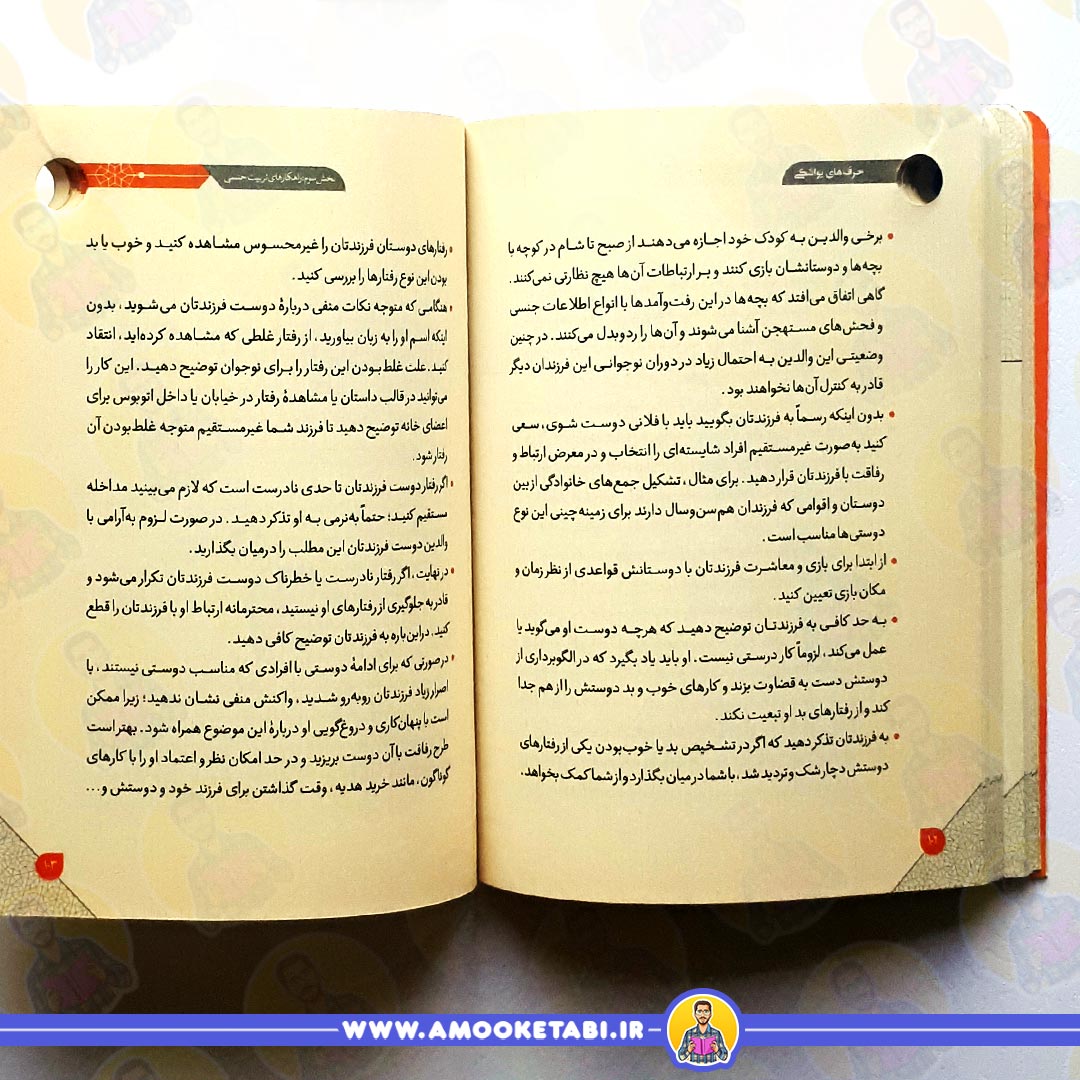 حرف‌های یواشکی
• برخی والدین به کودک خود اجازه می‌دهند از صبح تا شام در کوچه با
بچه‌ها و دوستانشان بازی کنند و بر ارتباطات آن‌ها هیچ نظارتی نمی‌کنند.
گاهی اتفاق می‌افتد که بچه‌ها در این رفت‌وآمدها با انواع اطلاعات جنسی
و فحش‌های مستهجن آشنا می‌شوند و آن‌ها را ردوبدل می‌کنند. در چنین
وضعیتی این والدین به احتمال زیاد در دوران نوجوانی این فرزندان دیگر
قادر به کنترل آن‌ها نخواهند بود.
• بدون اینکه رسماً به فرزندتان بگویید باید با فلانی دوست شوی، سعی
کنید به‌صورت غیرمستقیم افراد شایسته‌ای را انتخاب و در معرض ارتباط و
رفاقت با فرزندتان قرار دهید. برای مثال، تشکیل جمع‌های خانوادگی از بین
دوستان و اقوامی که فرزندان هم‌سن‌وسال دارند برای زمینه‌چینی این نوع
دوستی‌ها مناسب است.
• از ابتدا برای بازی و معاشرت فرزندتان با دوستانش قواعدی از نظر زمان و
مکان بازی تعیین کنید.
• به حد کافی به فرزندتان توضیح دهید که هرچه دوست او می‌گوید یا
عمل می‌کند، لزوماً کار درستی نیست. او باید یاد بگیرد که در الگوبرداری از
دوستش دست به قضاوت بزند و کارهای خوب و بد دوستش را از هم جدا
کند و از رفتارهای بد او تبعیت نکند.
• به فرزندتان تذکر دهید که اگر در تشخیص بد یا خوب‌بودن یکی از رفتارهای
دوستش دچار شک و تردید شد، با شما در میان بگذارد و از شما کمک بخواهد.
۱۰۲
بخش سوم: راهکارهای تربیت جنسی
• رفتارهای دوستان فرزندتان را غیرمحسوس مشاهده کنید و خوب یا بد
بودن این نوع رفتارها را بررسی کنید.
• هنگامی که متوجه نکات منفی دربارهٔ دوست فرزندتان می‌شوید، بدون
اینکه اسم او را به زبان بیاورید، از رفتار غلطی که مشاهده کرده‌اید، انتقاد
کنید. علت غلط بودن این رفتار را برای نوجوان توضیح دهید. این کار را
می‌توانید در قالب داستان یا مشاهدهٔ رفتار در خیابان یا داخل اتوبوس برای
اعضای خانه توضیح دهید تا فرزند شما غیرمستقیم متوجه غلط‌بودن آن
رفتار شود.
• اگر رفتار دوست فرزندتان تا حدی نادرست است که لازم می‌بینید مداخله
مستقیم کنید؛ حتماً به‌نرمی به او تذکر دهید. در صورت لزوم به‌آرامی با
والدین دوست فرزندتان این مطلب را درمیان بگذارید.
• در نهایت، اگر رفتار نادرست یا خطرناک دوست فرزندتان تکرار می‌شود و
قادر به جلوگیری از رفتارهای او نیستید، محترمانه ارتباط او با فرزندتان را قطع
کنید. در این‌باره به فرزندتان توضیح کافی دهید.
• درصورتی که برای ادامهٔ دوستی با افرادی که مناسب دوستی نیستند، با
اصرار زیاد فرزندتان روبه‌رو شدید، واکنش منفی نشان ندهید؛ زیرا ممکن
است با پنهان‌کاری و دروغ‌گویی او دربارهٔ این موضوع همراه شود. بهتر است
طرح رفاقت با آن دوست بریزید و در حد امکان نظر و اعتماد او را با کارهای
گوناگون، مانند خرید هدیه، وقت گذاشتن برای فرزند خود و دوستش و...
۱۰۳
WWW.AMOOKETABI.IR